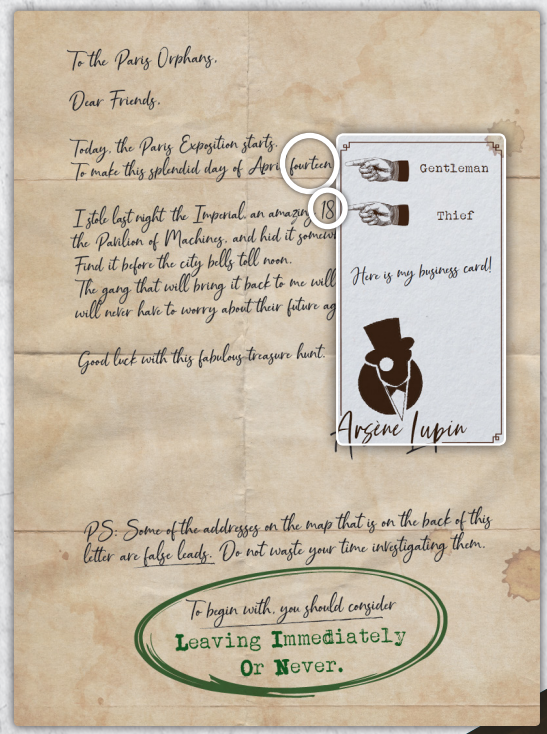 To the Paris Orphans,
Dear Friends,
Today, the Paris Exposition starts.
To make this splendid day of April fourteen
I stole last night the Imperial, an amazing 18
the Pavilion of Machines, and hid it
Find it before the city bells toll noon.
The gang that will bring it back to me will
will never have to worry about their future
Good luck with this fabulous treasure hunt.
Gentleman
Thief
Here is my business card!
Arsène Lupin
PS: Some of the addresses on the map that is on the back of this
letter are false leads. Do not waste your time investigating them.
To begin with, you should consider
Leaving Immediately
Or Never.